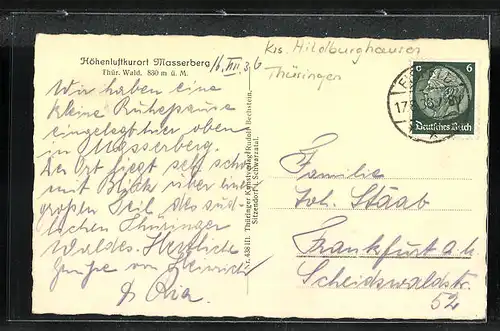 Höhenluftkurort Masserberg
Thür. Wald. 830 m ü. M.
16. VIII. 36
Wir haben eine
kleine Ruhepause
eingelegt hier oben
in Masserberg.
Der Ort liegt sehr schön
mit Blick über einen
großen Teil des süd-
lichen Thüringer
Waldes. Herzliche
Grüße von Heinrich
& Ria.
Nr. 438 Ill. Thüringer Kunstverlag Rudolf Bechstein,
Sitzendorf i. Schwarzatal.
Krs. Hildburghausen
Thüringen
6 6
Deutsches Reich
17.8.36
Familie
Joh. Staab
Frankfurt a. M.
Scheidswaldstr.
52